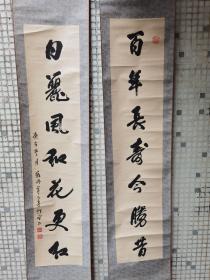 百年長壽今勝昔
日麗風和花更紅